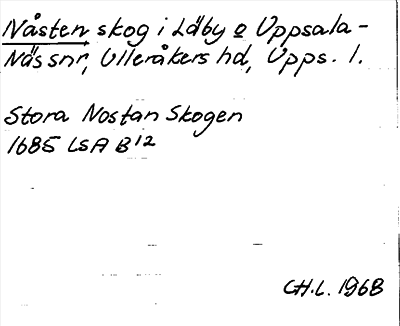 Nåsten skog i Läby o Uppsala-
Näs snr, Ulleråkers hd, Upps. l.
Stora Nostan Skogen
1685 LSA B12
CH.L. 1968